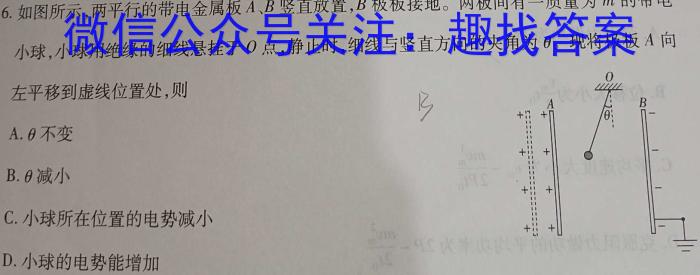 6.如图所示,两平行的带电金属板A、B竖直放置,B极板接地。两板间有一质量为m的带电
小球,小球用绝缘的细线悬挂于O点,静止时,细线与竖直方向的夹角为θ。现将极板A向
微信公众号关注：趣找答案
左平移到虚线位置处,则
A.θ不变
B.θ减小
C.小球所在位置的电势减小
D.小球的电势能增加
B
O
θ
A
B